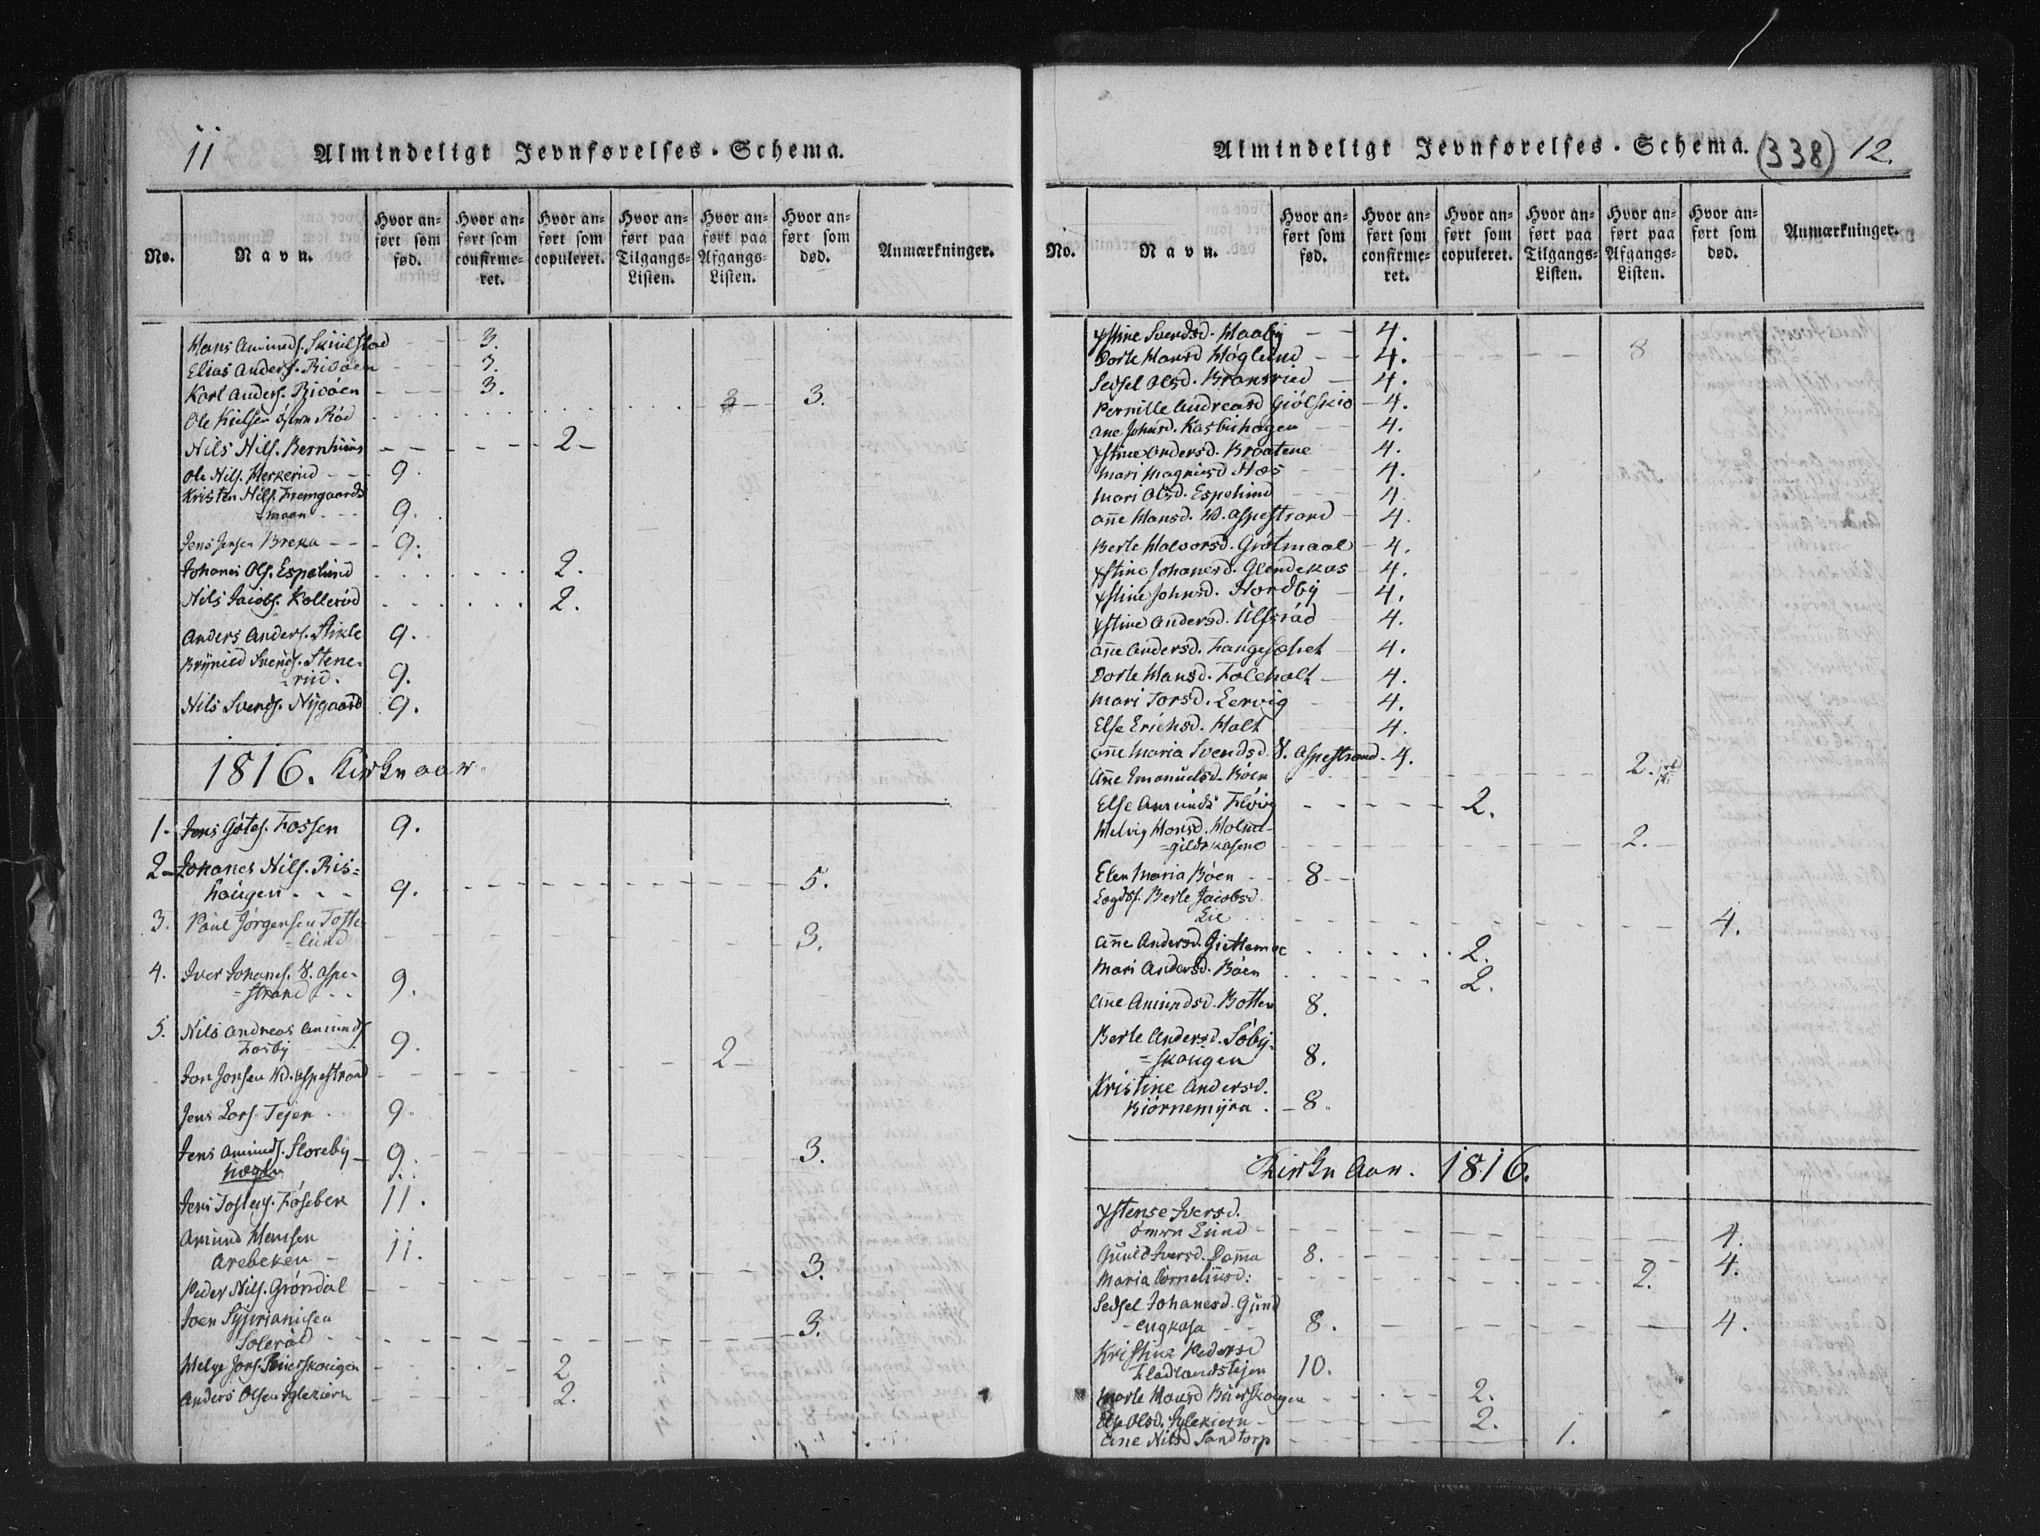 11
Almindeligt Jevnførelses-Schema.
No.
Navn.
Hvor anført som fød.
Hvor anført som confirmeret.
Hvor anført som copuleret.
Hvor anført paa Tilgangs-Listen.
Hvor anført paa Afgangs-Listen.
Hvor anført som død.
Anmærkninger.
Hans Amunds. Skiulstad - - 3.
Elias Anders. Bisöen - - - 3.
Karl Anders. Bisöen - - - 3.
Ole Kielsen Röd 3 3.
Nils Nils. Bernhuus - - - - - 2 -
Ole Nils. Herkerud - - - 9.
Kristen Nils. Fremgaards
=moen - - - 9.
Jens Jensen Breka - - - 9.
Johanes Ols. Espelund 2.
Nils Jacobs. Kolleröd 2.
Anders Anders. Aikle 9.
Brÿnild Svends. Stene-
=rud. 9.
Nils Svends. Nÿgaard 9.
1816. Kirkeaar
1. Jens Götes. Fossen 9.
2 - Johanes Nils. Ris=
haugen - - - 9. 5.
3. Paul Jörgensen Toste
=lund 3.
4. Iver Johanes. V. Aspe-
=strand - - 9.
5. Nils Andreas Amunds.
Fosby 9.
Jon Jonsen Nd. Aspestrand - - 2 -
Jens Lars. Tejen 9.
Jens Amunds. Storeby - 9. 3.
9.
Jens Tostens. Föseber 11.
Amund Hansen
Arebekken - 11.
Peder Nils. Gröndal 3.
Joen Sÿverinsen
Soleröd 3.
Helge Jons. Buerskougen 2
Anders Olsen Iglekiern 2.
Almindeligt Jevnførelses-Schema. (338) 12.
No.
Navn.
Hvor anført som fød.
Hvor anført som confirmeret.
Hvor anført som copuleret.
Hvor anført paa Tilgangs-Listen.
Hvor anført paa Afgangs-Listen.
Hvor anført som død.
Anmærkninger.
Ɣstine Svendsd. Haaby - - 4.
Dorte Hansd. Höglund - - 4. 8
Sedsel Olsd. Bransrud - 4.
Pernille Andreasd. Giölskiö - 4.
Ane Johnsd. Kasbuhagen 4.
Ɣstine Andersd. Braatene 4.
Mari Magniesd. Næs 4.
Mari Olsd. Espelund 4
Añe Hansd. Nd. Aspestrand - 4.
Berte Halvorsd. Grötmaal - 4.
Ɣstine Johanesd. Glendekas - 4.
Ɣstine Johnsd. Nordby 4.
Ɣstine Andersd. Ulfsröd 4.
Añe Andersd. 4.
Dorte Hansd. Foleholt - 4.
Mari Torsd. Lervig 4.
Else Erichsd. Holt 4.
Añe Maria Svendsd. V. Aspestrand - 4.
Añe Emanuelsd. Böen 2.
Else Amunds. Flöög 2.
Helvig Hansd. Holm-
=gildrkasene 2.
Elen Maria Böen 8 -
Logdsf. Berte Jacobsd.
Lie 4.
Añe Andersd. Giettemoe 2.
Mari Andersd. Böen 2.
Añe Amundsd. Botten 8.
Berte Andersd. Söby-
=skougen 8.
Kristine Andersd.
Biörnemÿra - 8.
Kirke Aar. 1816.
Ɣstense Iversd.
Lund 4.
Gunild Iversd. Damma 8. 4.
Maria Cornelius: 2.
Sedsel Johanesd. Gund
engkasa 8. 4.
Kristine Pedersd.
Fladlandstejen 10.
Marte Hansd. Buerskougen 2.
Else Olsd. Iglekiern - 2.
Ane Nilsd. Sandtorp 1.